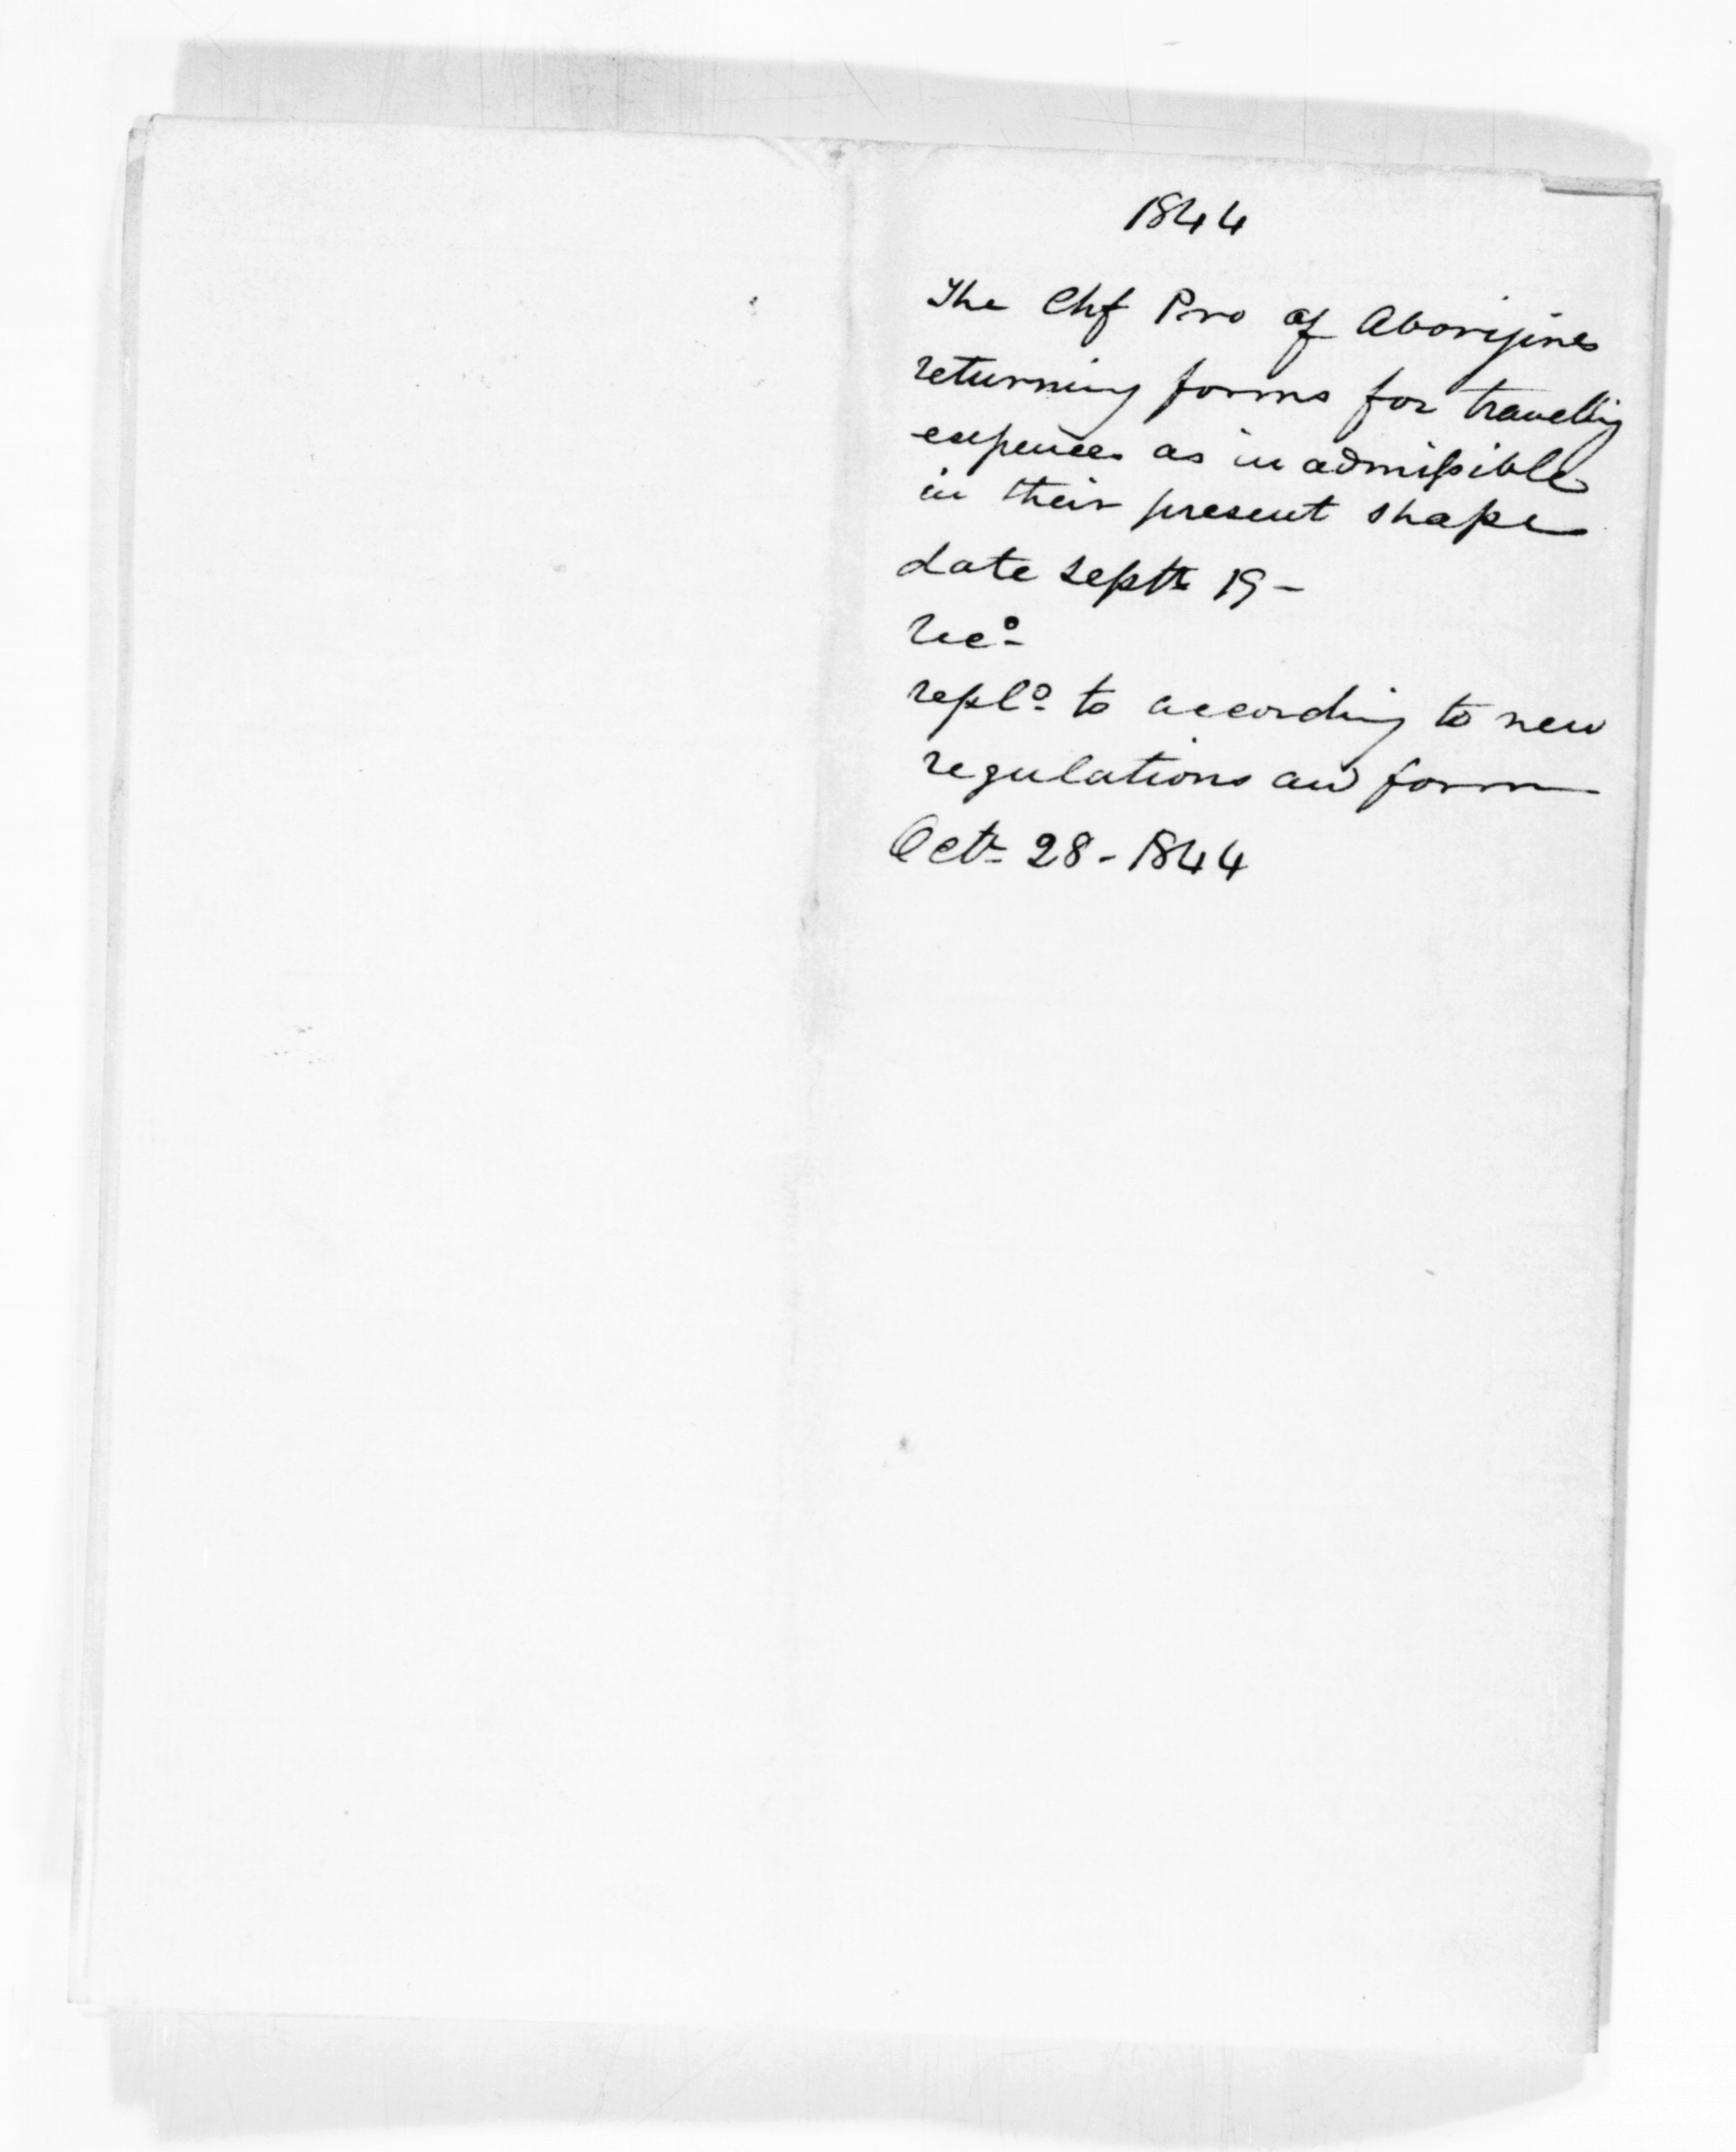 1844
The Chf Pro of Aborijines
returning forms for travellig
expences as inadmissible
in their present shape
date Septr 19 -
recd
repld to according to new
regulations and form
Octr 28 - 1844